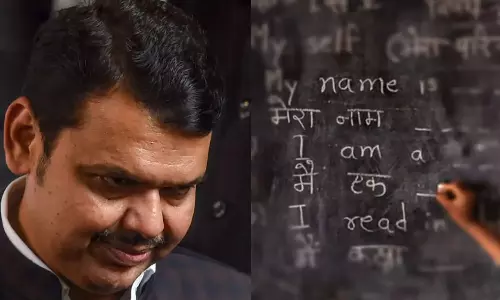 My self (मेरा परि
My name is
मेरा नाम __
I am a
मैं एक __
I read in
मैं कक्षा __